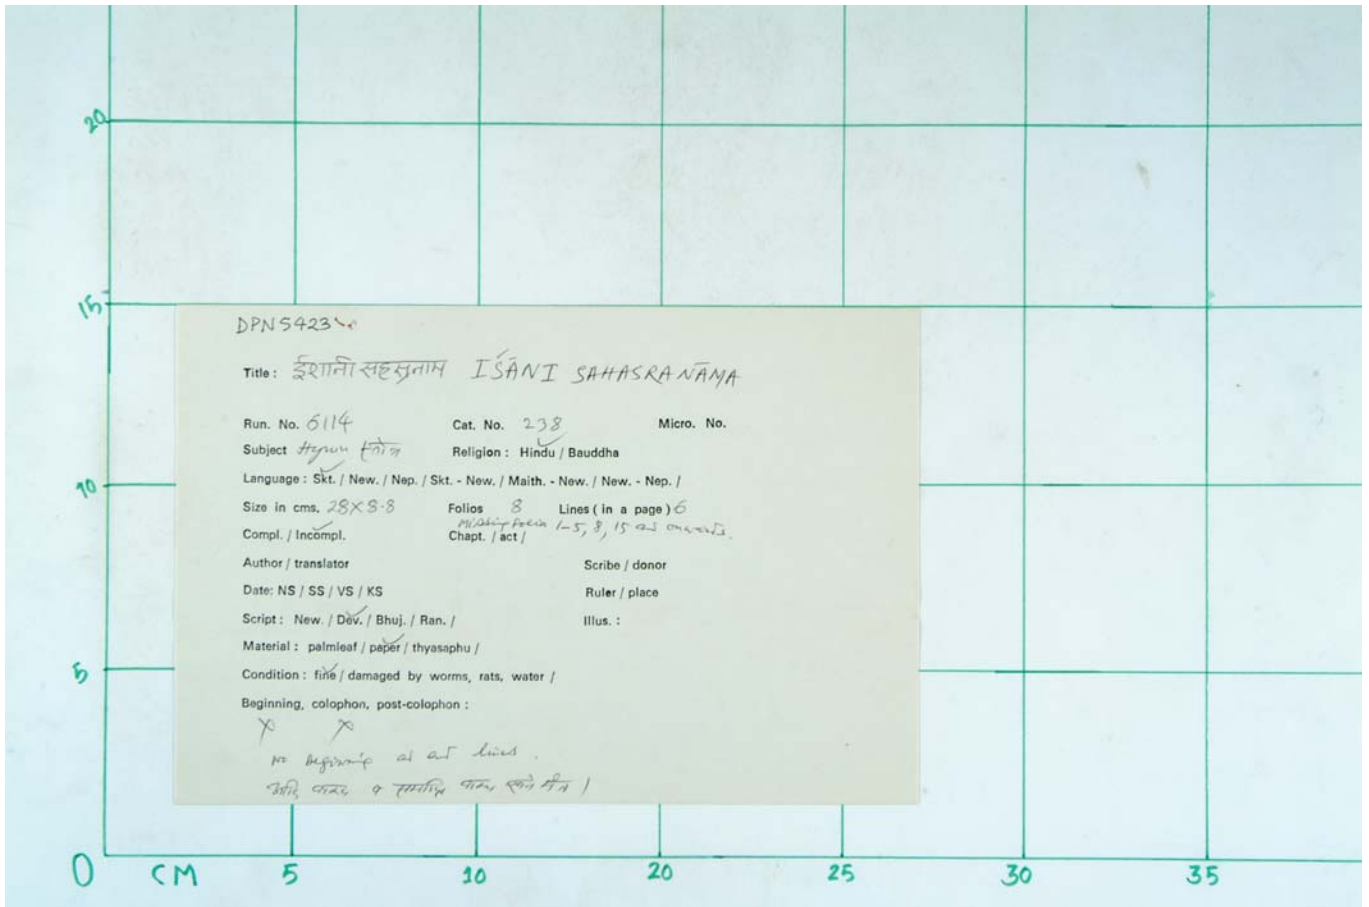 20
15
DPN5423
Title: ईशानी सहस्रनाम IŚĀNI SAHASRANĀMA
Run. No. 6114 Cat. No. 238 Micro. No.
Subject Hymn स्तोत्र Religion : Hindu / Bauddha
Language : Skt. / New. / Nep. / Skt. - New. / Maith. - New. / New. - Nep. /
10
Size in cms. 28X8.8 Folios 8 Lines ( in a page ) 6
Missing folia 1-5, 8, 15 and onwards.
Compl. / Incompl. Chapt. / act /
Author / translator Scribe / donor
Date: NS / SS / VS / KS Ruler / place
Script : New. / Dev. / Bhuj. / Ran. / Illus. :
Material : palmleaf / paper / thyasaphu /
5
Condition : fine / damaged by worms, rats, water /
Beginning, colophon, post-colophon :
X X
No beginning lines.
0 CM 5 10 20 25 30 35